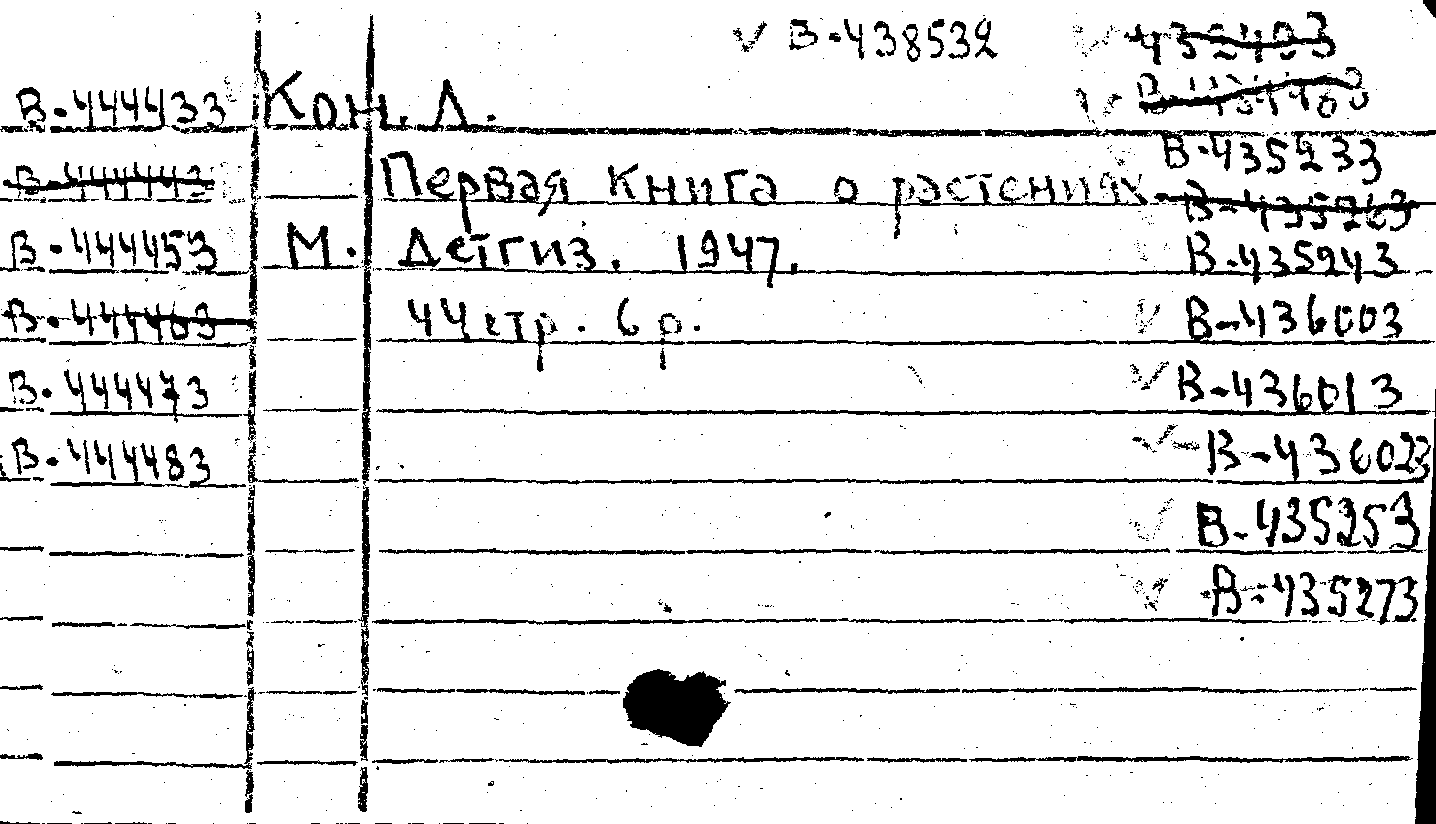 В-438532
В-444433 Кон. Л.
В-435233
В-444443 Первая Книга о растениях.
В-435263
В-444453 М. Детгиз. 1947. В-435243
В-444463 44 стр. 6 р. В-436003
В-444473 В-436013
В-444483 В-436023
В-435253
В-435273